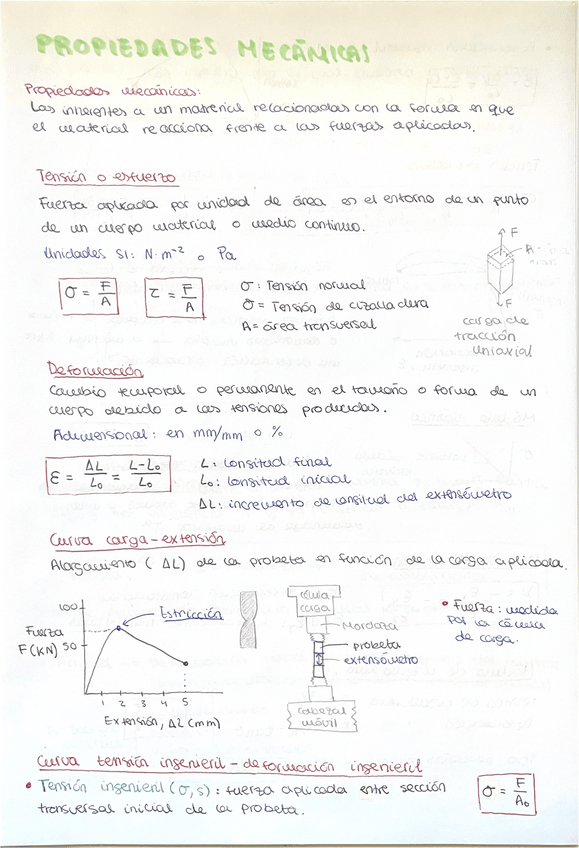 PROPIEDADES MECÁNICAS
Propiedades mecánicas:
Las inherentes a un matrerial relacionadas con la forma en que
el material reacciona frente a las fuerzas aplicadas.
Tensión o esfuerzo
Fuerza aplicada por unidad de área en el entorno de un punto
de un cuerpo material o medio continuo.
Unidades SI: N·m⁻² o Pa
σ = F/A
τ = F/A
σ: Tensión normal
σ = Tensión de cizalladura
A = área transversal
F
A
F
carga de
tracción
uniaxial
Deformación
Cambio temporal o permanente en el tamaño o forma de un
cuerpo debido a las tensiones producidas.
Adimensional: en mm/mm o %
ε = ΔL/L₀ = L-L₀/L₀
L: longitud final
L₀: longitud inicial
ΔL: incremento de longitud del extensómetro
Curva carga-extensión
Alargamiento (ΔL) de la probeta en función de la carga aplicada.
100
Fuerza
F(KN) 50
Estricción
1 2 3 4 5
Extensión, ΔL (mm)
célula
carga
Mordaza
probeta
extensómetro
cabezal
móvil
• Fuerza: medida
por la célula
de carga.
Curva tensión ingenieril-deformación ingenieril
• Tensión ingenieril (σ,s): fuerza aplicada entre sección
transversal inicial de la probeta.
σ = F/A₀